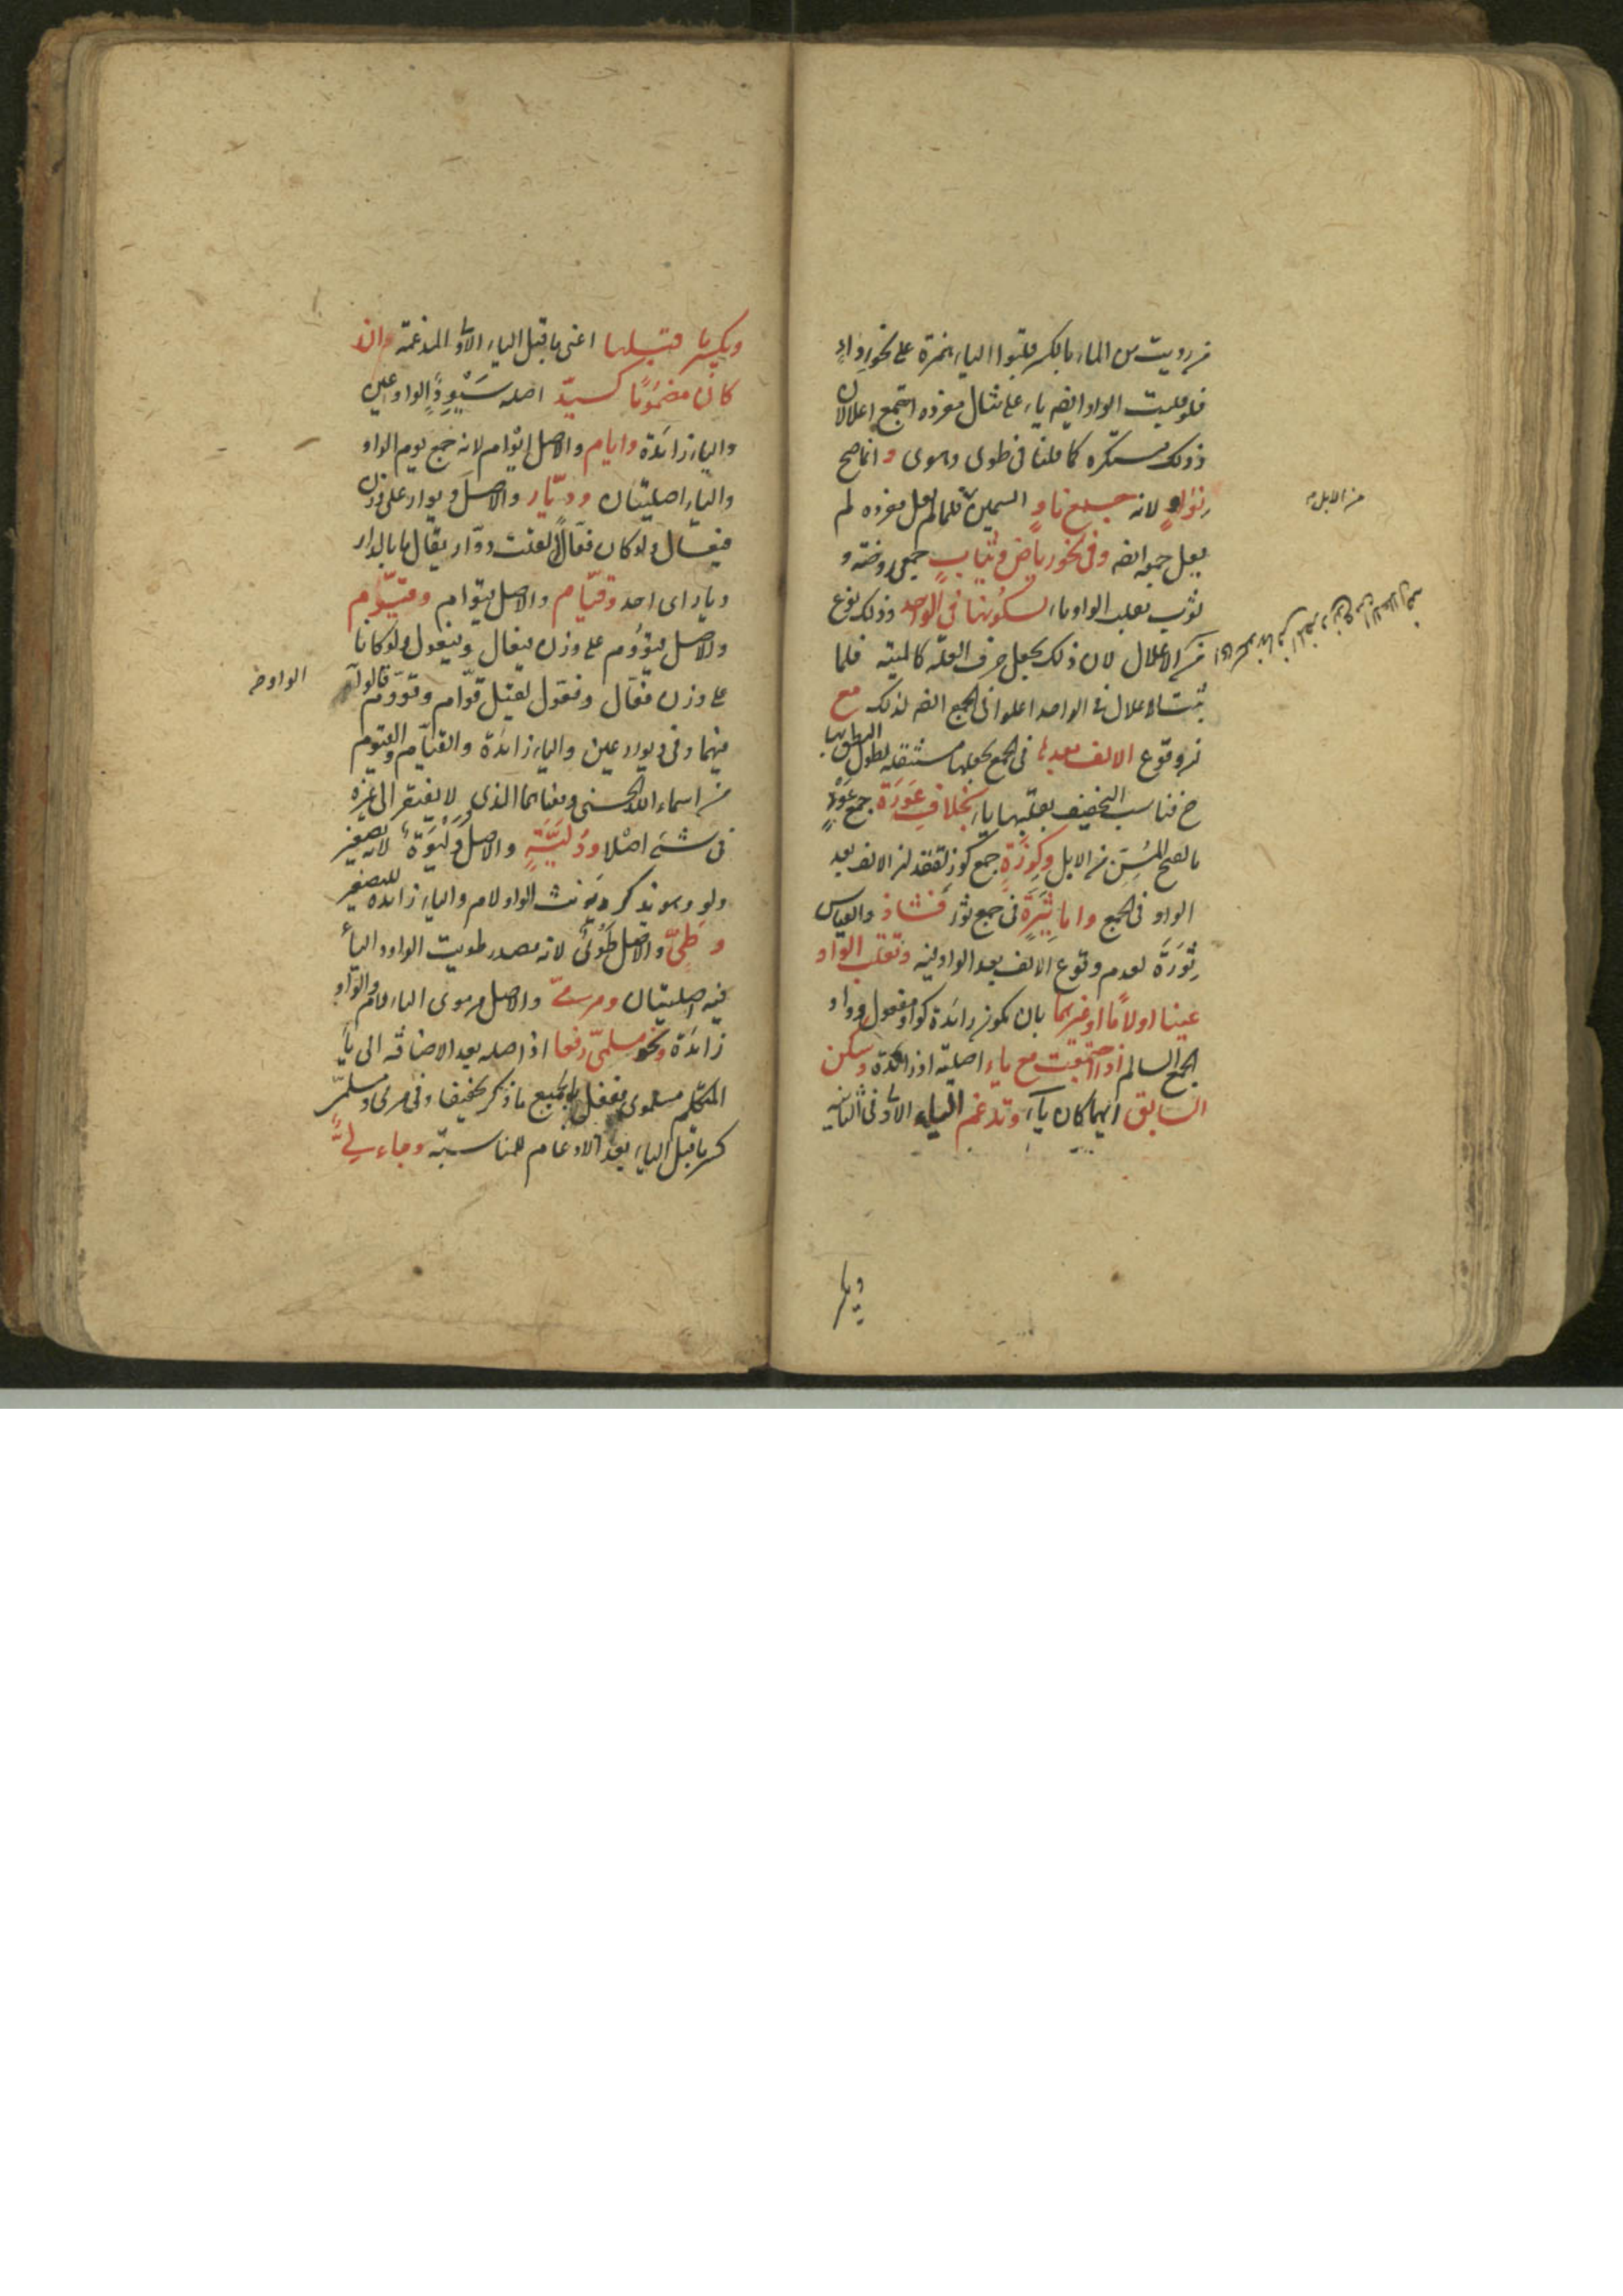 من رويت من الماء بالكسر قلبوا الياء همزة على نحو رداء
فلو قلبت الواو ايضا ياء على مثال مفرده اجتمع اعلالان
وذلك مستكره كما قلنا في طوى وهوى و انما صح
نواء لانه جمع ناو السمين فلما لم يعل مفرده لم
يعل جمعه ايضا وفي نحو رياض وثياب جمعى روضة و
ثوب بقلب الواو ياء لسكونها في الواحد وذلك نوع
من الاعلال لان ذلك يجعل حرف العلة كالميتة فلما
ثبت الاعلال في الواحد اعلوا في الجمع ايضا لذلك مع
ان وقوع الالف بعدها في الجمع يجعلها مستثقلة لطول النطق بها
ح فناسب التخفيف بقلبها ياء بخلاف عودة جمع عود
بالفتح للمسن من الابل وكوزة جمع كوز لفقد ان الالف بعد
الواو في الجمع واما ثيرة في جمع ثور فشاذ والقياس
ثورة لعدم وقوع الالف بعد الواو فيه وتقلب الواو
عينا او لاما او غيرهما بان يكون زائدة كواو مفعول وواو
الجمع السالم اذا اجتمعت مع ياء اصلية او زائدة وسكن
السابق ايهما كان ياء وتدغم الياء الاولى في الثانية
من الابل
ويكسر
ويكسر ما قبلها اعنى ما قبل الياء الاولى المدغمة ان
كان مضموما كسيد اصله سيود الواو عين
والياء زائدة وايام والاصل ايوام لانه جمع يوم الواو
والياء اصليتان وديار والاصل ديوار على وزن
فيعال ولو كان فعالا لقلت دوار يقال ما بالدار
ديار اى احد وقيام والاصل قيوام وقيوم
والاصل قيووم على وزن فيعال وفيعول ولو كانا
على وزن فعال وفعول لقيل قوام وقووم قالوا
فيهما وفي ديور عين والياء زائدة والقيام والقيوم
من اسماء الله الحسنى ومعناهما الذى لا يفتقر الى غيره
في شئ اصلا ودلية والاصل دليوة لانه تصغير
دلو وهو يذكر ويونث الواو لام والياء زائدة للتصغير
وطى والاصل طوى لانه مصدر طويت الواو والياء
فيه اصليتان ومرمى والاصل مرموى الياء لام والواو
زائدة ونحو مسلمى رفعا اذ اصله بعد الاضافة الى ياء
المتكلم مسلموى ففعل بالجميع ما ذكر تخفيفا وفي مرمى ومسلمى
كسر ما قبل الياء بعد الادغام للمناسبة وجاء لى
الواو